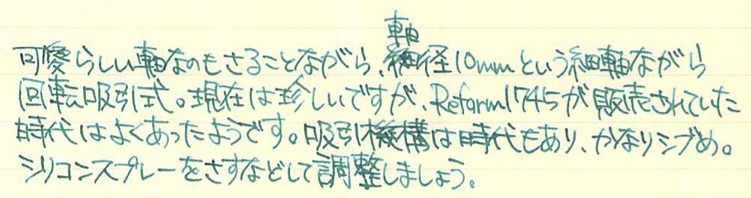 可愛らしい軸なのもさることながら、軸径10mmという細軸ながら
回転吸引式。現在は珍しいですが、Reform1745が販売されていた
時代はよくあったようです。吸引機構は時代もあり、かなりシブめ。
シリコンスプレーをさすなどして調整しましょう。